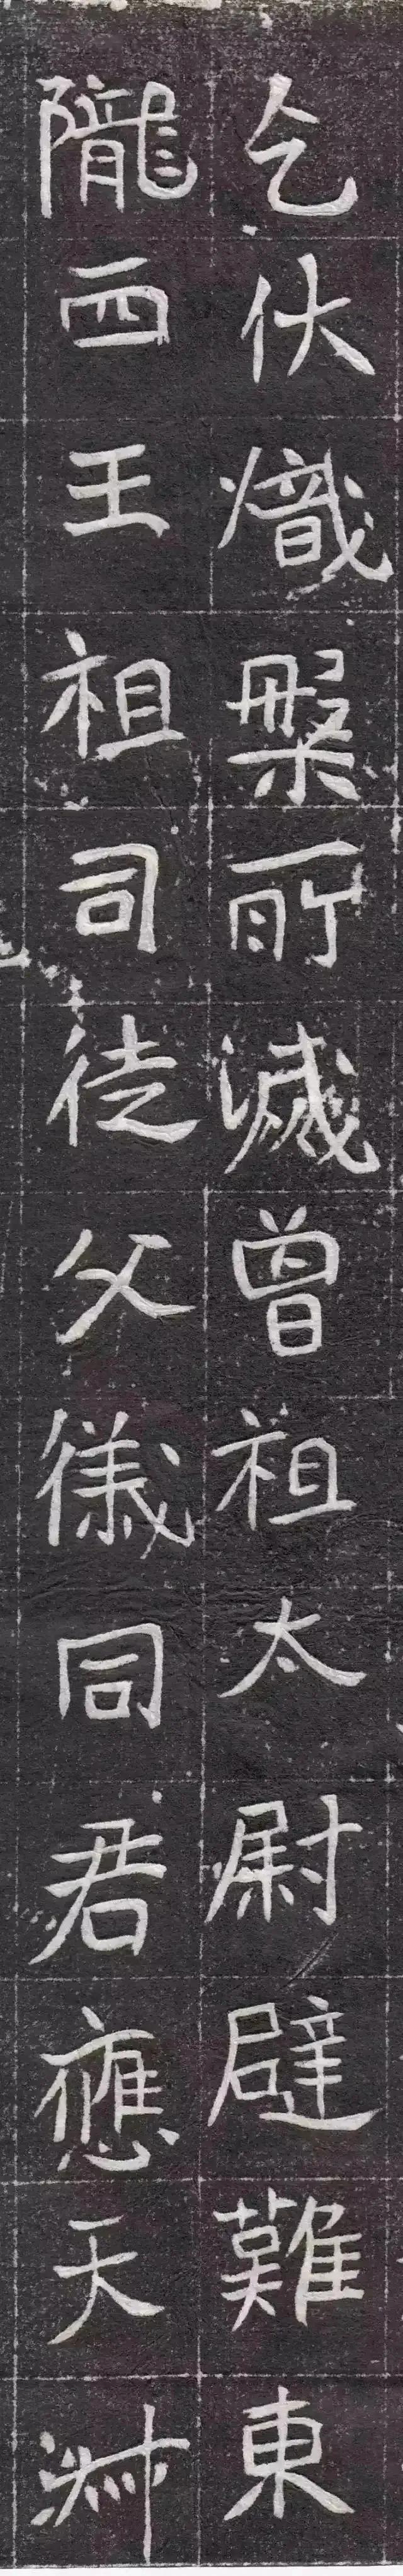 乞伏熾槃所滅曾祖太尉避難東
隴西王祖司徒父儀同君應天淑